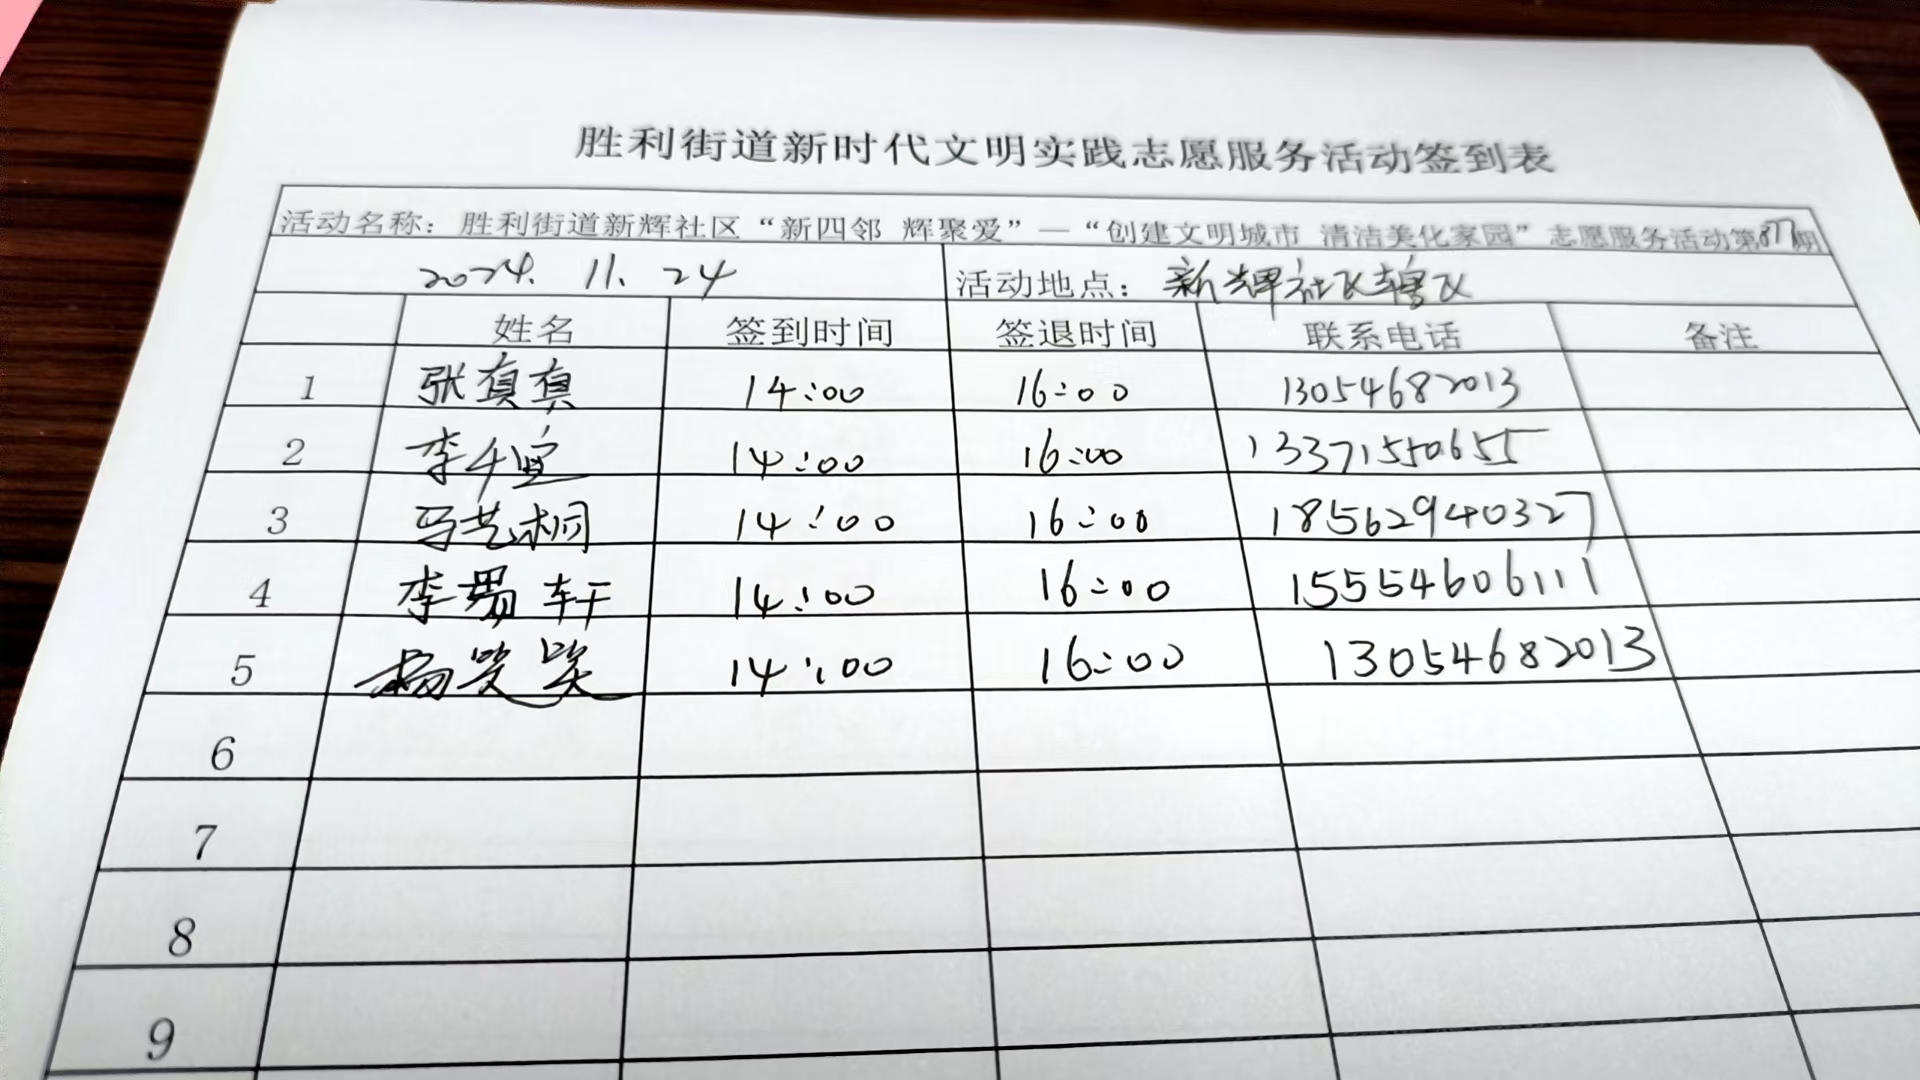 胜利街道新时代文明实践志愿服务活动签到表
活动名称：胜利街道新辉社区“新四邻 辉聚爱”—“创建文明城市 清洁美化家园”志愿服务活动第877期
2024.11.24 活动地点：新辉社区辖区
姓名 签到时间 签退时间 联系电话 备注
1 张真真 14:00 16:00 13054682013
2 李千宜 14:00 16:00 13371550655
3 马艺桐 14:00 16:00 18562940327
4 李 轩 14:00 16:00 15554606111
5 杨笑笑 14:00 16:00 13054682013
6
7
8
9